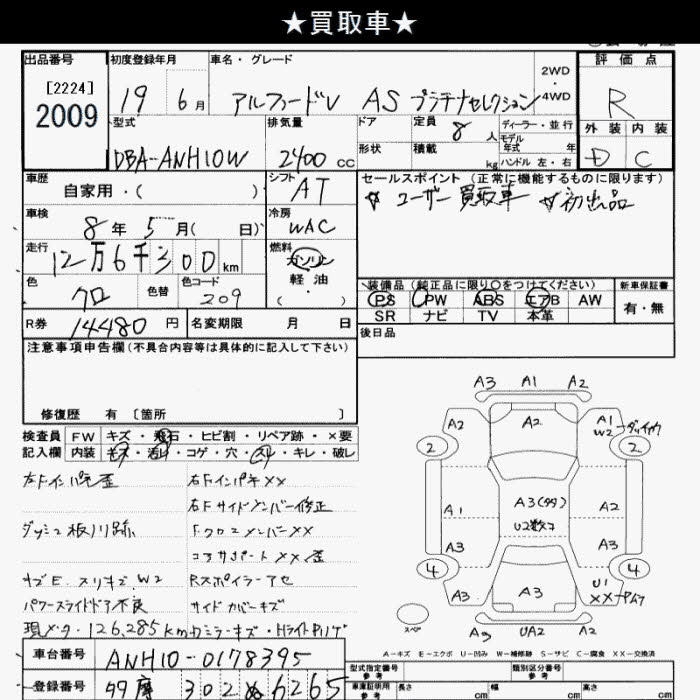 ★買取車★
出品番号 初度登録年月 車名・グレード 評価点
[2224] 2WD
2009 19 6月 アルファードV AS プラチナセレクション 4WD R
型式 排気量 ドア 定員 8人 ディーラー・並行 外装 内装
モデル年式 年
DBA-ANH10W 2400 cc 形状 積載 kg ハンドル 左・右 D C
車歴 シフト セールスポイント (正常に機能するものに限ります)
自家用・( ) AT ☆ユーザー買取車 ☆初出品
車検 冷房
8年 5月( 日) WAC
走行 燃料
12万6千300km ガソリン
色 色替 色コード 軽油 装備品 (純正品に限り〇をつけてください) 新車保証書
クロ 209 ( ) PS PW ABS エアB AW 有・無
SR ナビ TV 本革
R券 14480円 名変期限 月 日 後日品
注意事項申告欄(不具合内容等は具体的に記入して下さい)
修復歴 有 [箇所 ]
検査員 FW キズ・飛石・ヒビ割・リペア跡・×要
記入欄 内装 キズ・汚れ・コゲ・穴・スレ・キレ・破レ
左Fインパネ歪 右FインパネXX
右Fサイドメンバー修正
FクロスメンバーXX
コアサポートXX 歪
スリキズ W2 Rスポイラーアセ
パワースライドドア不良 サイドカバーキズ
現メータ・126,285km
車台番号 ANH10-0178395
登録番号 302 ぬ 6265
A3 A1 A2
A2 A2 A1
W2
2 2
A1 A3 A2
U2
A3 A3
4 4
A3 A3 U1
XX
スペア
A3 UA2 A2
A-キズ E-エクボ U-凹み W-補修跡 S-サビ C-腐食 XX-交換済
型式指定番号 参考 類別区分番号 参考
車庫証明用 参考 長さ cm 幅 cm 高さ cm